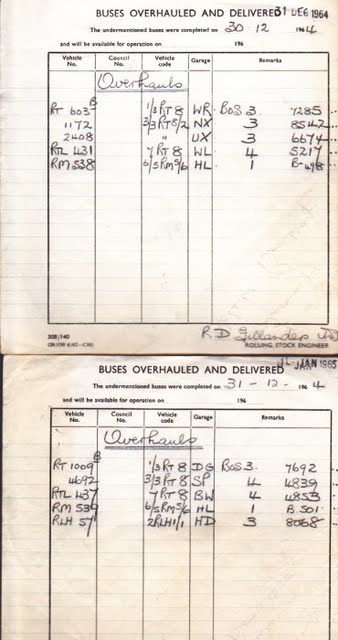 BUSES OVERHAULED AND DELIVERED 31 DEC 1964
The undermentioned buses were completed on 30.12 1964
and will be available for operation on 196
Vehicle No. Council No. Vehicle code Garage Remarks
Overhauls
RT 603 B 1/3 RT 8 WR BOS 3. 7285
1172 3/3 RT 8/2 NX 3 8542
2408 " UX 3 6674
RTL 431 7 RT 8 WL 4 5217
RM 538 6/5 RM 5/6 HL 1 B-498
308/140
R D Gillanders
ROLLING STOCK ENGINEER
BUSES OVERHAULED AND DELIVERED JAN 1965
The undermentioned buses were completed on 31-12-1964
and will be available for operation on 196
Vehicle No. Council No. Vehicle code Garage Remarks
Overhauls
RT 1009 B 1/3 RT 8 DG BOS 3. 7692
4692 3/3 RT 8 SP 4 4839
RTL 437 7 RT 8 BW 4 4853
RM 539 6/5 RM 5/6 HL 1 B.501
RLH 57 2RLH1/1 HD 3 8068